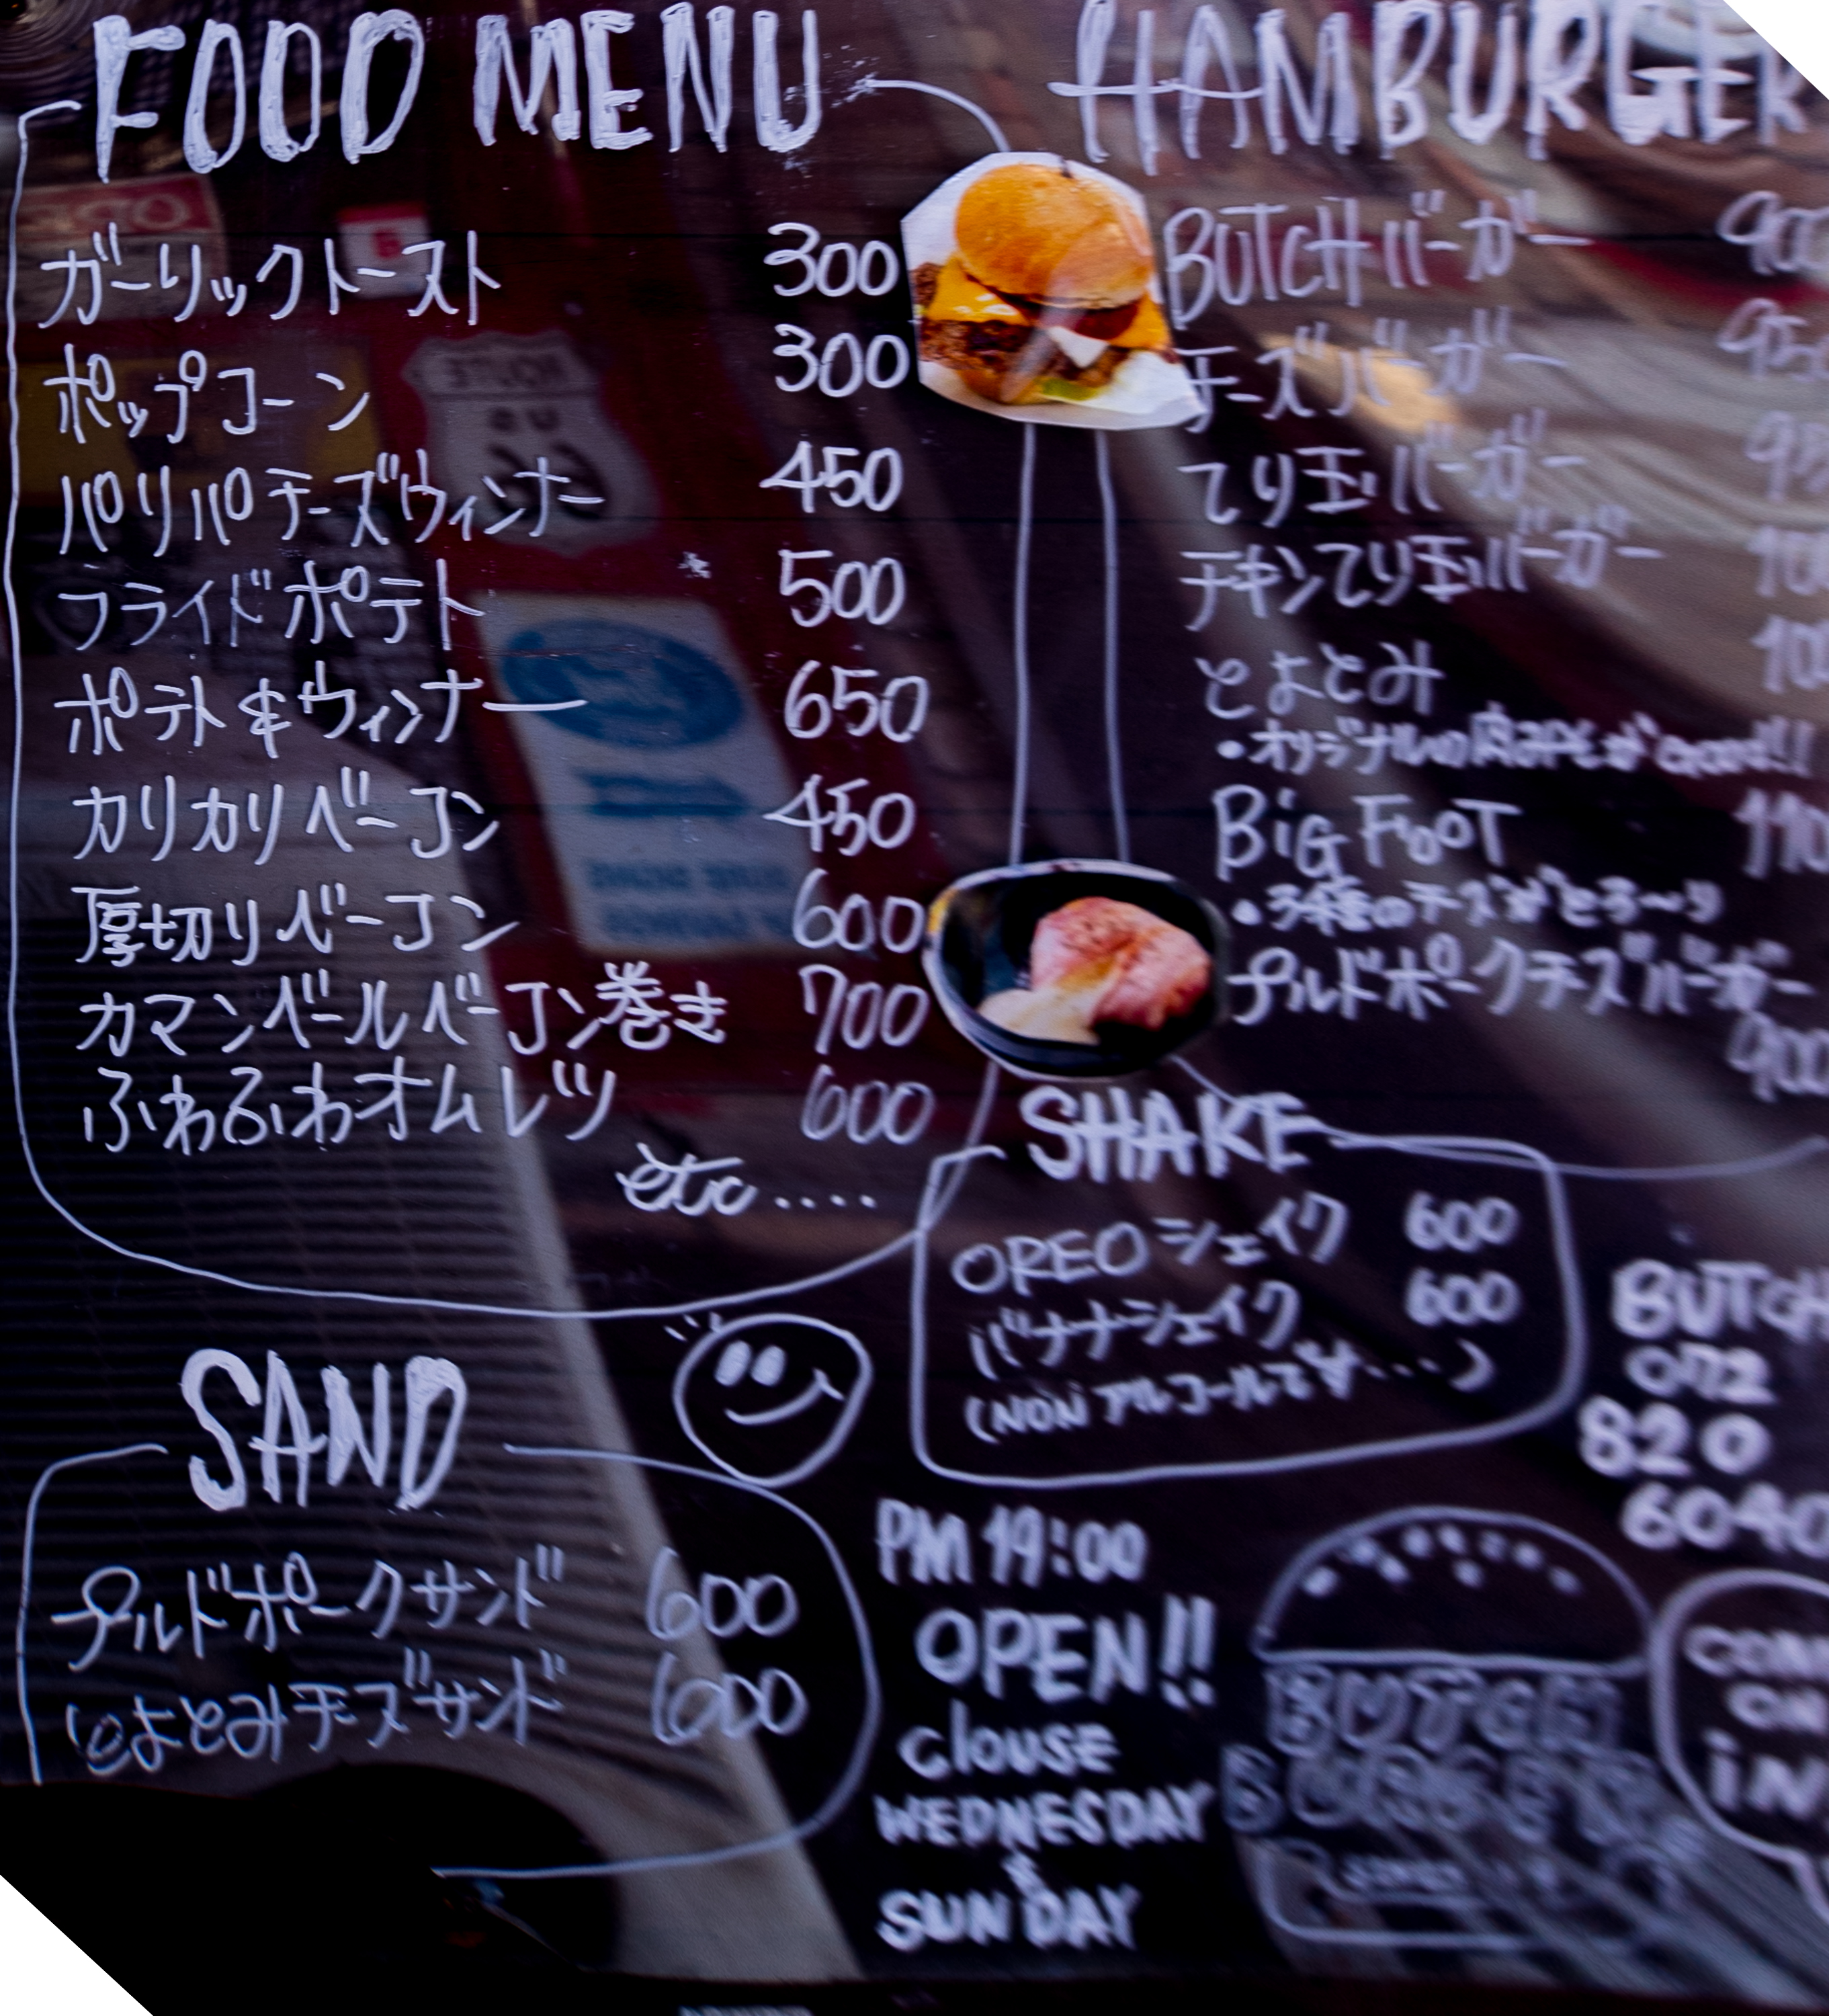 FOOD MENU
ガーリックトースト 300
ポップコーン 300
パリパリチーズウィンナー 450
フライドポテト 500
ポテト&ウィンナー 650
カリカリベーコン 450
厚切りベーコン 600
カマンベールベーコン巻き 700
ふわふわオムレツ 600
etc....
HAMBURGER
BUTCHバーガー 900
チーズバーガー 950
てり玉バーガー
チキンてり玉バーガー
とよとみ
・オリジナルの
BiG FOOT
・3種のチーズがとろ〜り
プルドポークチーズバーガー
900
SHAKE
OREOシェイク 600
バナナシェイク 600
(NONアルコールです...)
SAND
プルドポークサンド 600
とよとみチーズサンド 600
PM 19:00
OPEN!!
clouse
WEDNESDAY
&
SUNDAY
BUTCH
072
820
6040
BUTCH
BURGER
ON
iN
ROUTE
US
66